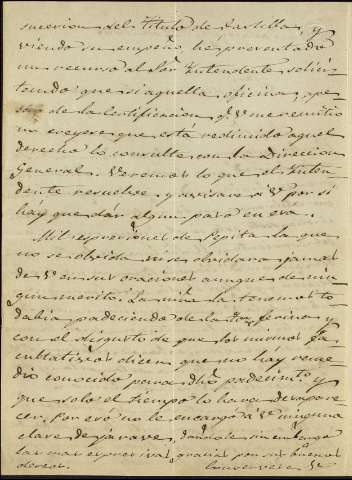 sucesion del titulo de Castilla, y
viendo su empeño, he presentado
un recurso al Sor. Intendente solici-
tando que si aquella oficina, ape
sar de la Certificacion q.e V. me remitio
no creyese que está redimido aquel
derecho lo consulte con la Direccion
General. Veremos lo que el Inten-
dente resuelve y avisare a V. por si
háy que dár algun paso en esa.
Mil espresiones de Pepita la que
no se olvida ni se olvidara jamas
de V. en sus oraciones aunque de nin
gun merito. La niña la tenemos to
dabia padeciendo de la tos ferina y
con el disgusto de que los mismos fa
cultatibos dicen que no hay reme
dio conocido para dho padecim.to y
que solo el tiempo lo hara desapare
cer. Por eso no le encargo a V. ninguna
clase de jarave, dandole sin embargo
las mas espresivas gracias por sus buenos
deseos. Conservese V.